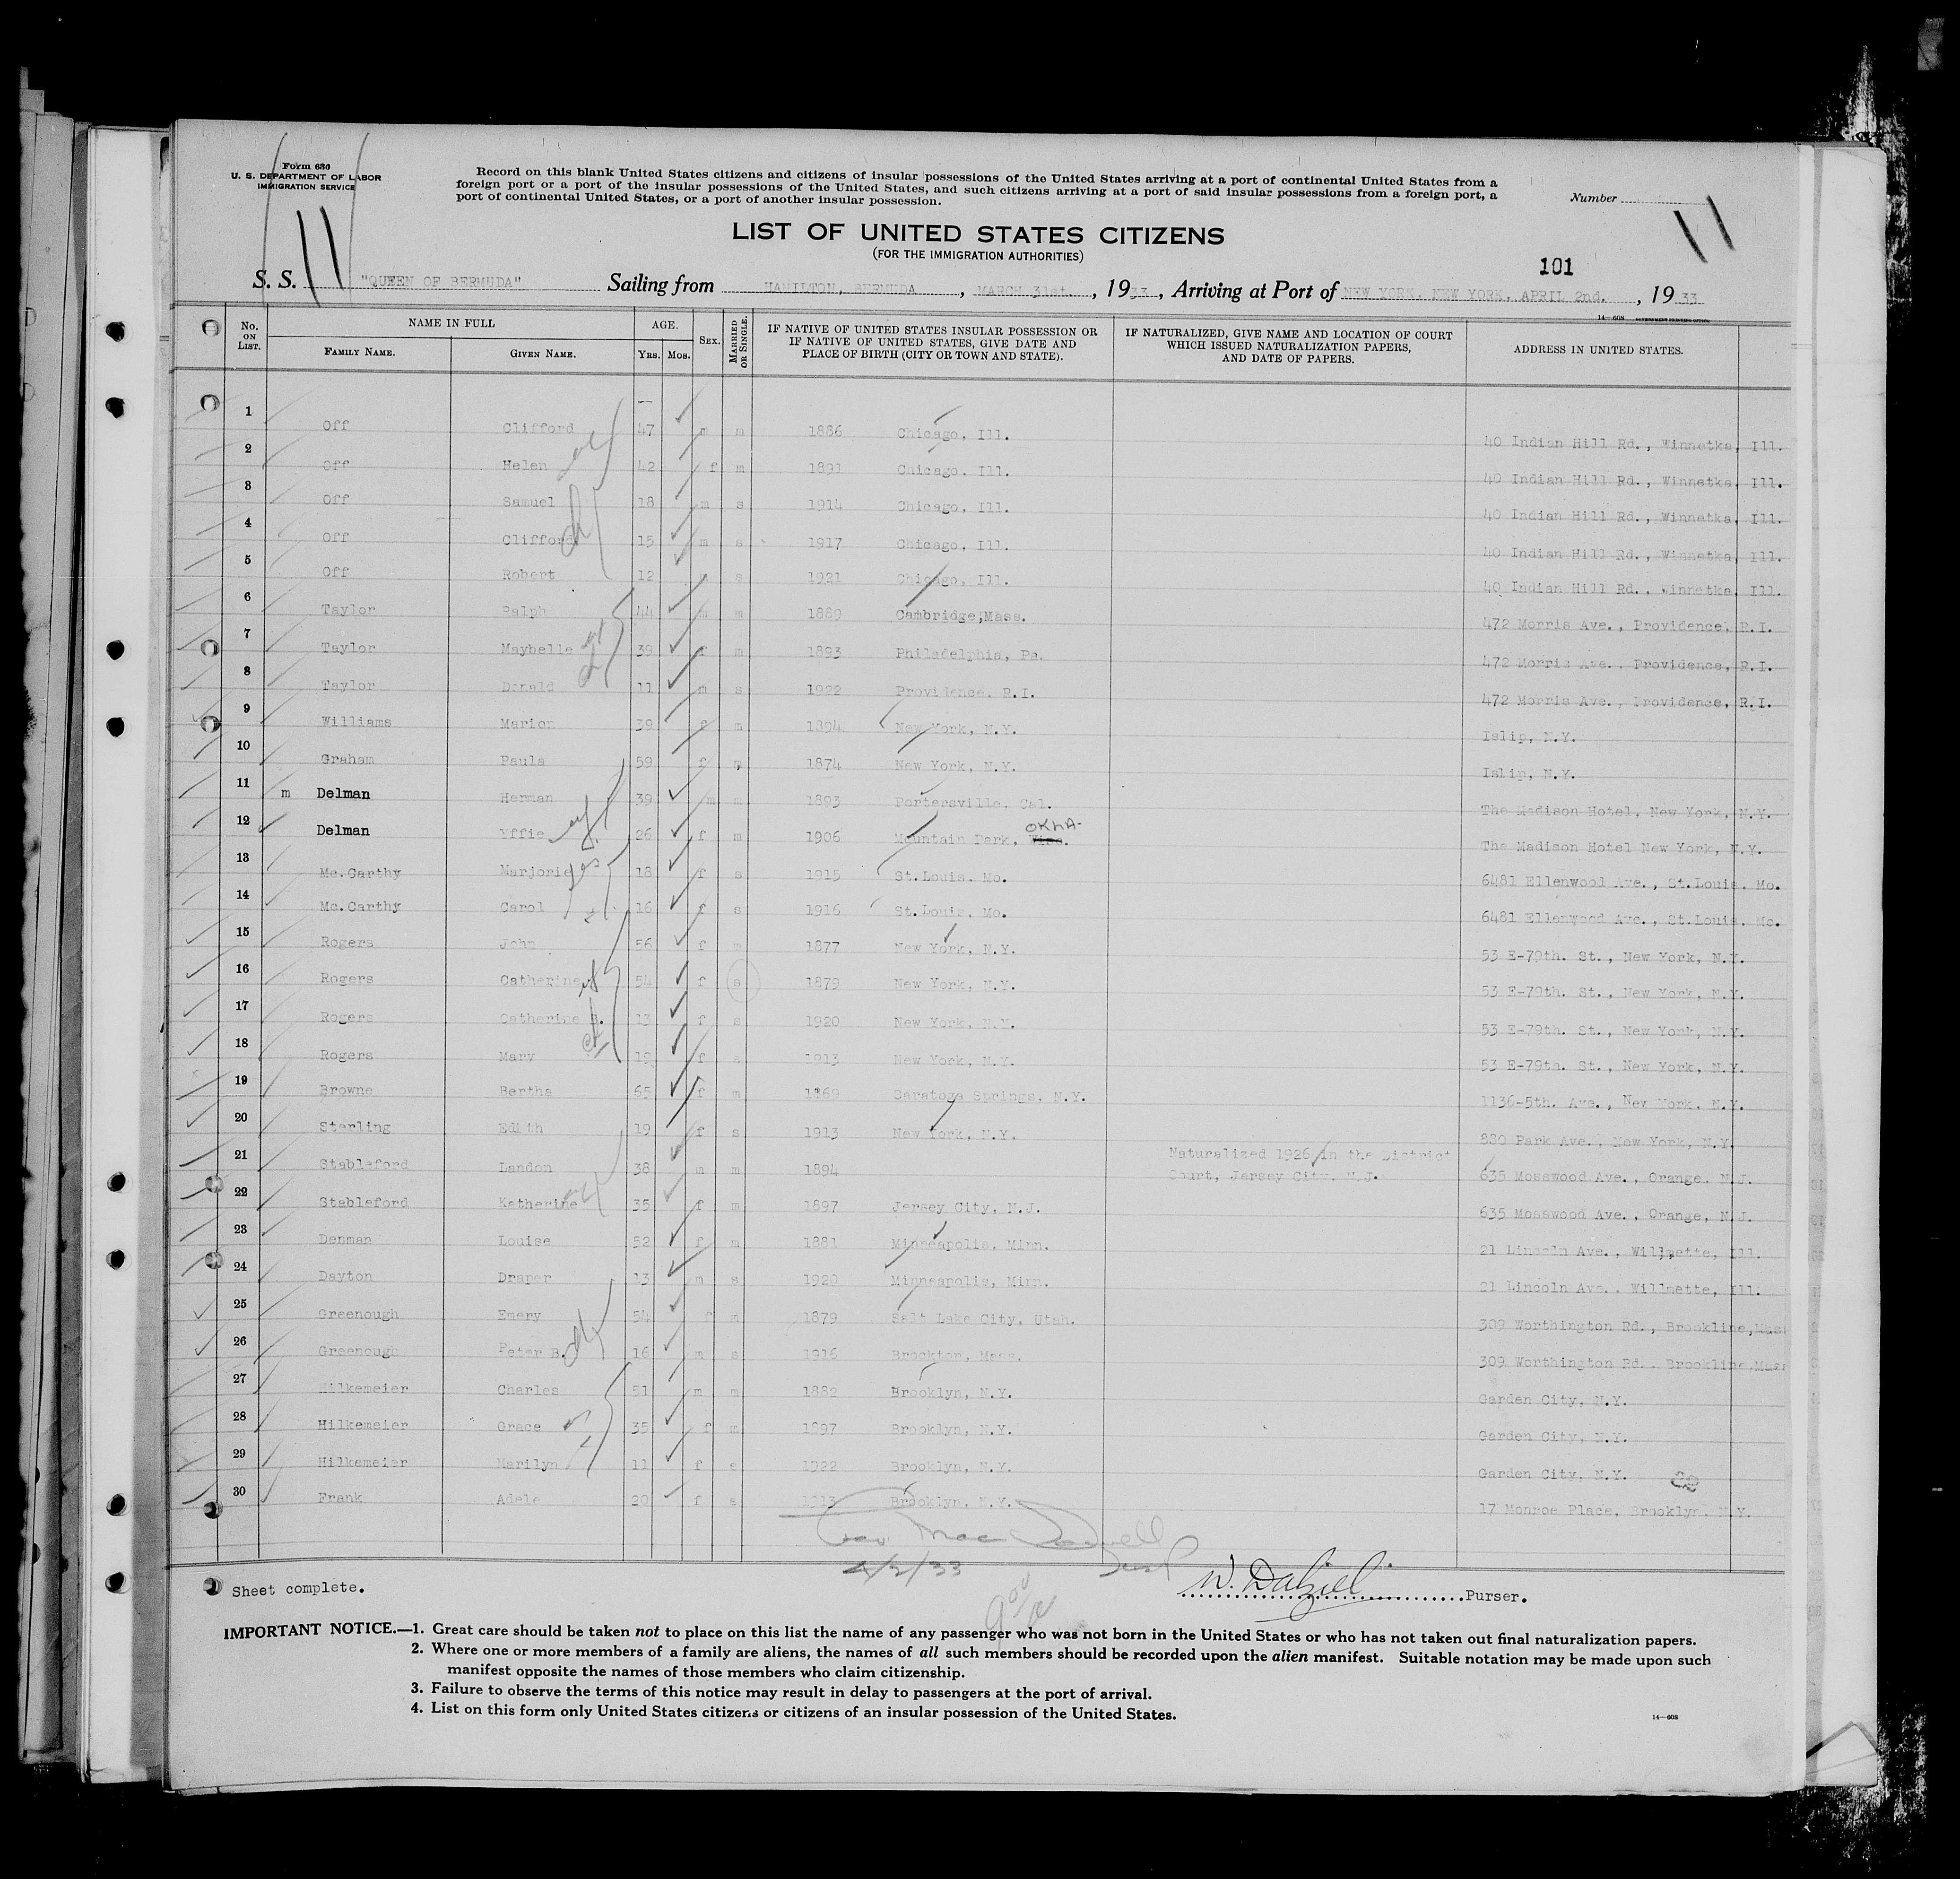 Form 630
U. S. DEPARTMENT OF LABOR
IMMIGRATION SERVICE
Record on this blank United States citizens and citizens of insular possessions of the United States arriving at a port of continental United States from a
foreign port or a port of the insular possessions of the United States, and such citizens arriving at a port of said insular possessions from a foreign port, a
port of continental United States, or a port of another insular possession.
Number
11
11
LIST OF UNITED STATES CITIZENS
(FOR THE IMMIGRATION AUTHORITIES)
101
S. S. "QUEEN OF BERMUDA" Sailing from HAMILTON, BERMUDA, MARCH 31st., 1933, Arriving at Port of NEW YORK, NEW YORK, APRIL 2nd., 1933
14—608 GOVERNMENT PRINTING OFFICE
No. ON LIST. NAME IN FULL FAMILY NAME. GIVEN NAME. AGE. Yrs. Mos. SEX. MARRIED OR SINGLE. IF NATIVE OF UNITED STATES INSULAR POSSESSION OR IF NATIVE OF UNITED STATES, GIVE DATE AND PLACE OF BIRTH (CITY OR TOWN AND STATE). IF NATURALIZED, GIVE NAME AND LOCATION OF COURT WHICH ISSUED NATURALIZATION PAPERS, AND DATE OF PAPERS. ADDRESS IN UNITED STATES.
1 Off Clifford 47 m m 1886 Chicago, Ill. 40 Indian Hill Rd., Winnetka, Ill.
2 Off Helen 42 f m 1891 Chicago. Ill. 40 Indian Hill Rd., Winnetka, Ill.
3 Off Samuel 18 m s 1914 Chicago, Ill. 40 Indian Hill Rd., Winnetka, Ill.
4 Off Clifford 15 m s 1917 Chicago, Ill. 40 Indian Hill Rd., Winnetka, Ill.
5 Off Robert 12 s 1921 Chicago, Ill. 40 Indian Hill Rd., Winnetka, Ill.
6 Taylor Ralph 44 m m 1889 Cambridge,Mass. 472 Morris Ave., Providence, R.I.
7 Taylor Maybelle 39 f m 1893 Philadelphia, Pa. 472 Morris Ave., Providence, R.I.
8 Taylor Donald 11 m s 1922 Providence. R.I. 472 Morris Ave., Providence, R.I.
9 Williams Marion 39 f m 1894 New York, N.Y. Islip, N.Y.
10 Graham Paula 59 f m 1874 New York, N.Y. Islip, N.Y.
11 m Delman Herman 39 m m 1893 Portersville. Cal. The Madison Hotel, New York, N.Y.
12 Delman Yffie 26 f m 1906 Mountain Park, OKLA. The Madison Hotel New York, N.Y.
13 Mc.Carthy Marjorie 18 f s 1915 St.Louis. Mo. 6481 Ellenwood Ave., St.Louis. Mo.
14 Mc.Carthy Carol 16 f s 1916 St.Louis, Mo. 6481 Ellenwood Ave., St.Louis. Mo.
15 Rogers John 56 f m 1877 New York, N.Y. 53 E-79th. St., New York, N.Y.
16 Rogers Catherine 54 f s 1879 New York, N.Y. 53 E-79th. St., New York, N.Y.
17 Rogers Catherine 13 f s 1920 New York, N.Y. 53 E-79th. St., New York, N.Y.
18 Rogers Mary 19 f s 1913 New York, N.Y. 53 E-79th. St., New York, N.Y.
19 Browne Bertha 65 f m 1869 Saratoga Springs, N.Y. 1136-5th. Ave., New York, N.Y.
20 Sterling Edith 19 f s 1913 New York, N.Y. 830 Park Ave., New York, N.Y.
21 Stableford Landon 38 m m 1894 Naturalized 1926 in the District Court, Jersey City, N.J. 635 Mosswood Ave., Orange, N.J.
22 Stableford Katherine 35 f m 1897 Jersey City, N.J. 635 Mosswood Ave., Orange, N.J.
23 Denman Louise 52 f m 1881 Minneapolis, Minn. 21 Lincoln Ave., Willmette, Ill.
24 Dayton Draper 13 m s 1920 Minneapolis, Minn. 21 Lincoln Ave., Willmette, Ill.
25 Greenough Emery 54 f m 1879 Salt Lake City, Utah. 309 Worthington Rd., Brookline,Mass
26 Greenough Peter B. 16 m s 1916 Brockton, Mass. 309 Worthington Rd., Brookline,Mass
27 Hilkemeier Charles 51 m m 1882 Brooklyn, N.Y. Garden City, N.Y.
28 Hilkemeier Grace 35 f m 1897 Brooklyn, N.Y. Garden City, N.Y.
29 Hilkemeier Marilyn 11 f s 1922 Brooklyn, N.Y. Garden City, N.Y.
30 Frank Adele 20 f s 1913 Brooklyn, N.Y. 17 Monroe Place, Brooklyn, N.Y.
4/2/33
Sheet complete.
W. Dalziel Purser.
IMPORTANT NOTICE.—1. Great care should be taken not to place on this list the name of any passenger who was not born in the United States or who has not taken out final naturalization papers.
2. Where one or more members of a family are aliens, the names of all such members should be recorded upon the alien manifest. Suitable notation may be made upon such
manifest opposite the names of those members who claim citizenship.
3. Failure to observe the terms of this notice may result in delay to passengers at the port of arrival.
4. List on this form only United States citizens or citizens of an insular possession of the United States.
14—608